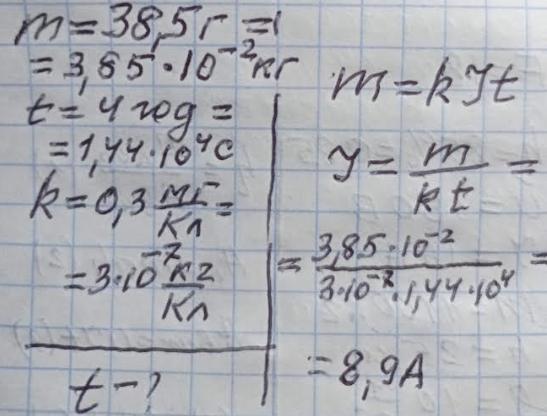 m = 38,5 г =
= 3,85 · 10⁻² кг
t = 4 год =
= 1,44 · 10⁴ с
k = 0,3 мг/Кл =
= 3 · 10⁻⁷ кг/Кл
t - ?
m = kIt
I = m/(kt) =
= (3,85 · 10⁻²)/(3 · 10⁻⁷ · 1,44 · 10⁴) =
= 8,9 А